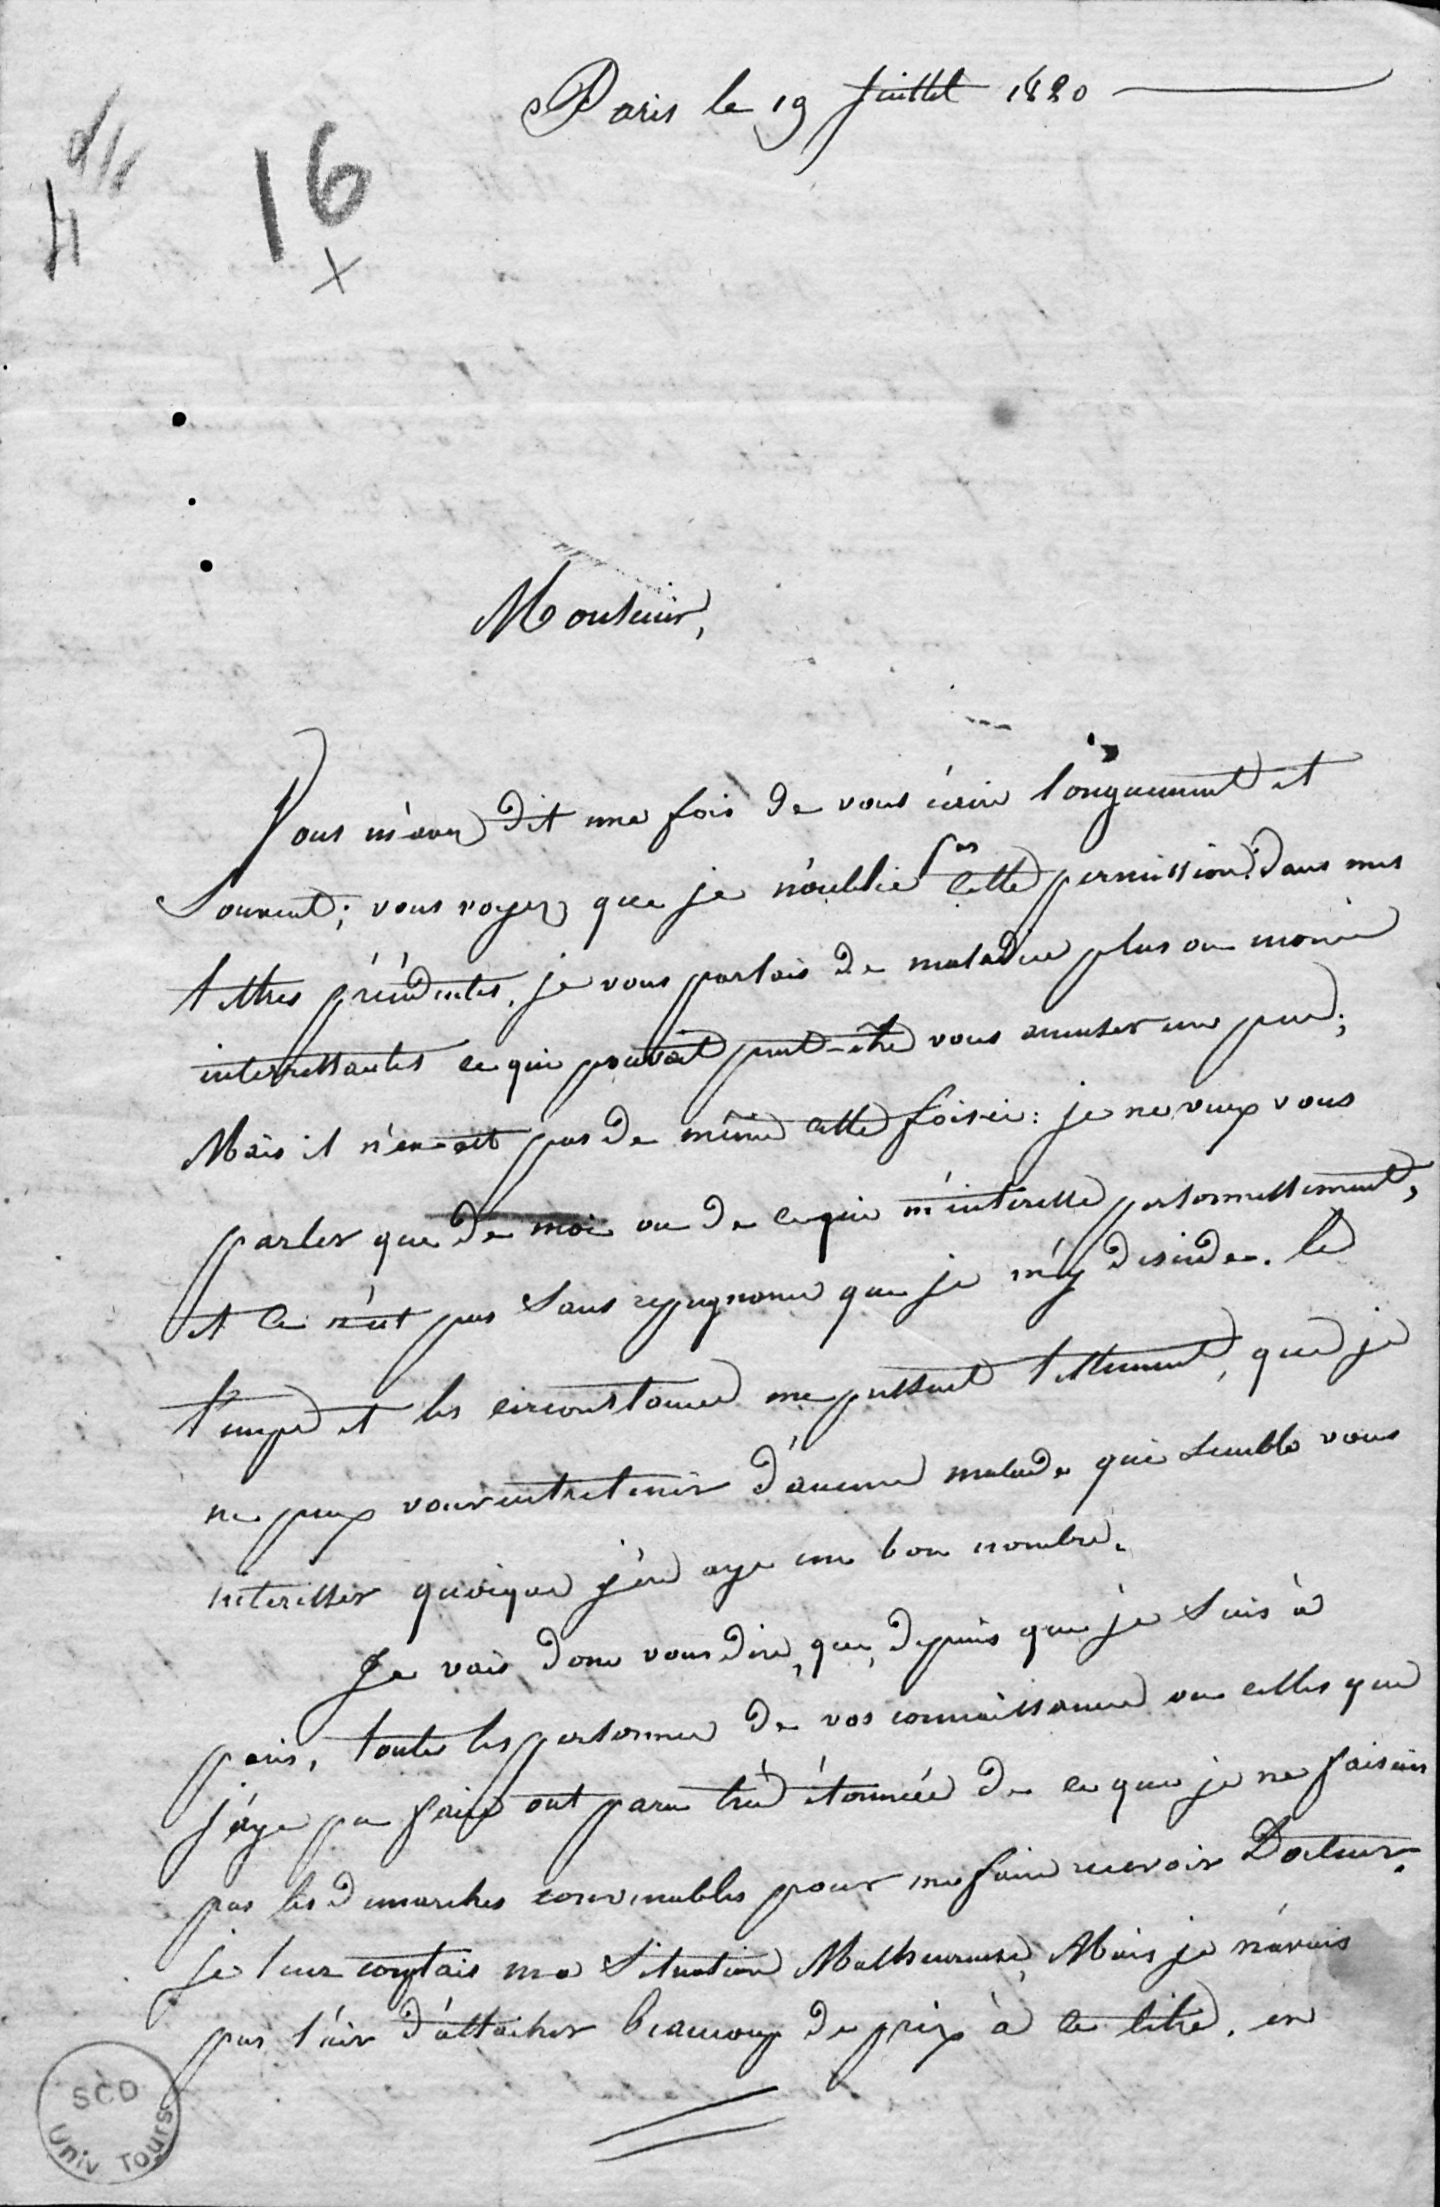 Paris le 19 Juillet 1820
16
x
Monsieur,
Vous m'avez dit une fois de vous écrire longuement et
Souvent; vous voyez que je n'oublie pas cette permission. Dans mes
lettres précédentes, je vous parlais de maladies plus ou moins
interressantes ce qui pouvait peut-être vous amuser un peu;
Mais il n'en est pas de même cette fois-ci: je ne veux vous
parler que de moi ou de ce qui m'interesse personnellement,
et ce n'est pas sans repugnance que je m'y décide. le
temps et les circonstances me pressent tellement, que je
ne peux vous entretenir d'aucune malade qui semble vous
interesser quoique j'en aye un bon nombre.
Je vais donc vous dire, que, depuis que je suis à
paris, toutes les personnes de vos connaissances ou celles que
j'aye pu faire ont paru très étonnées de ce que je ne faisais
pas les demarches convenables pour me faire recevoir Docteur.
je leur comptais ma Situation Malheureuse, Mais je n'avais
pas l'air d'attacher beaucoup de prix à ce titre. en
SCD
Univ Tours